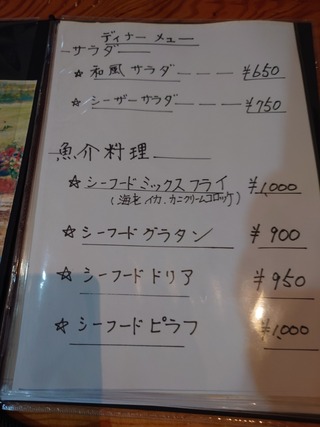 ディナー メニュー
サラダ
☆ 和風サラダ ¥650
☆ シーザーサラダ ¥750
魚介料理
☆ シーフードミックスフライ ¥1,000
(海老.イカ.カニクリームコロッケ)
☆ シーフードグラタン ¥900
☆ シーフードドリア ¥950
☆ シーフードピラフ ¥1,000